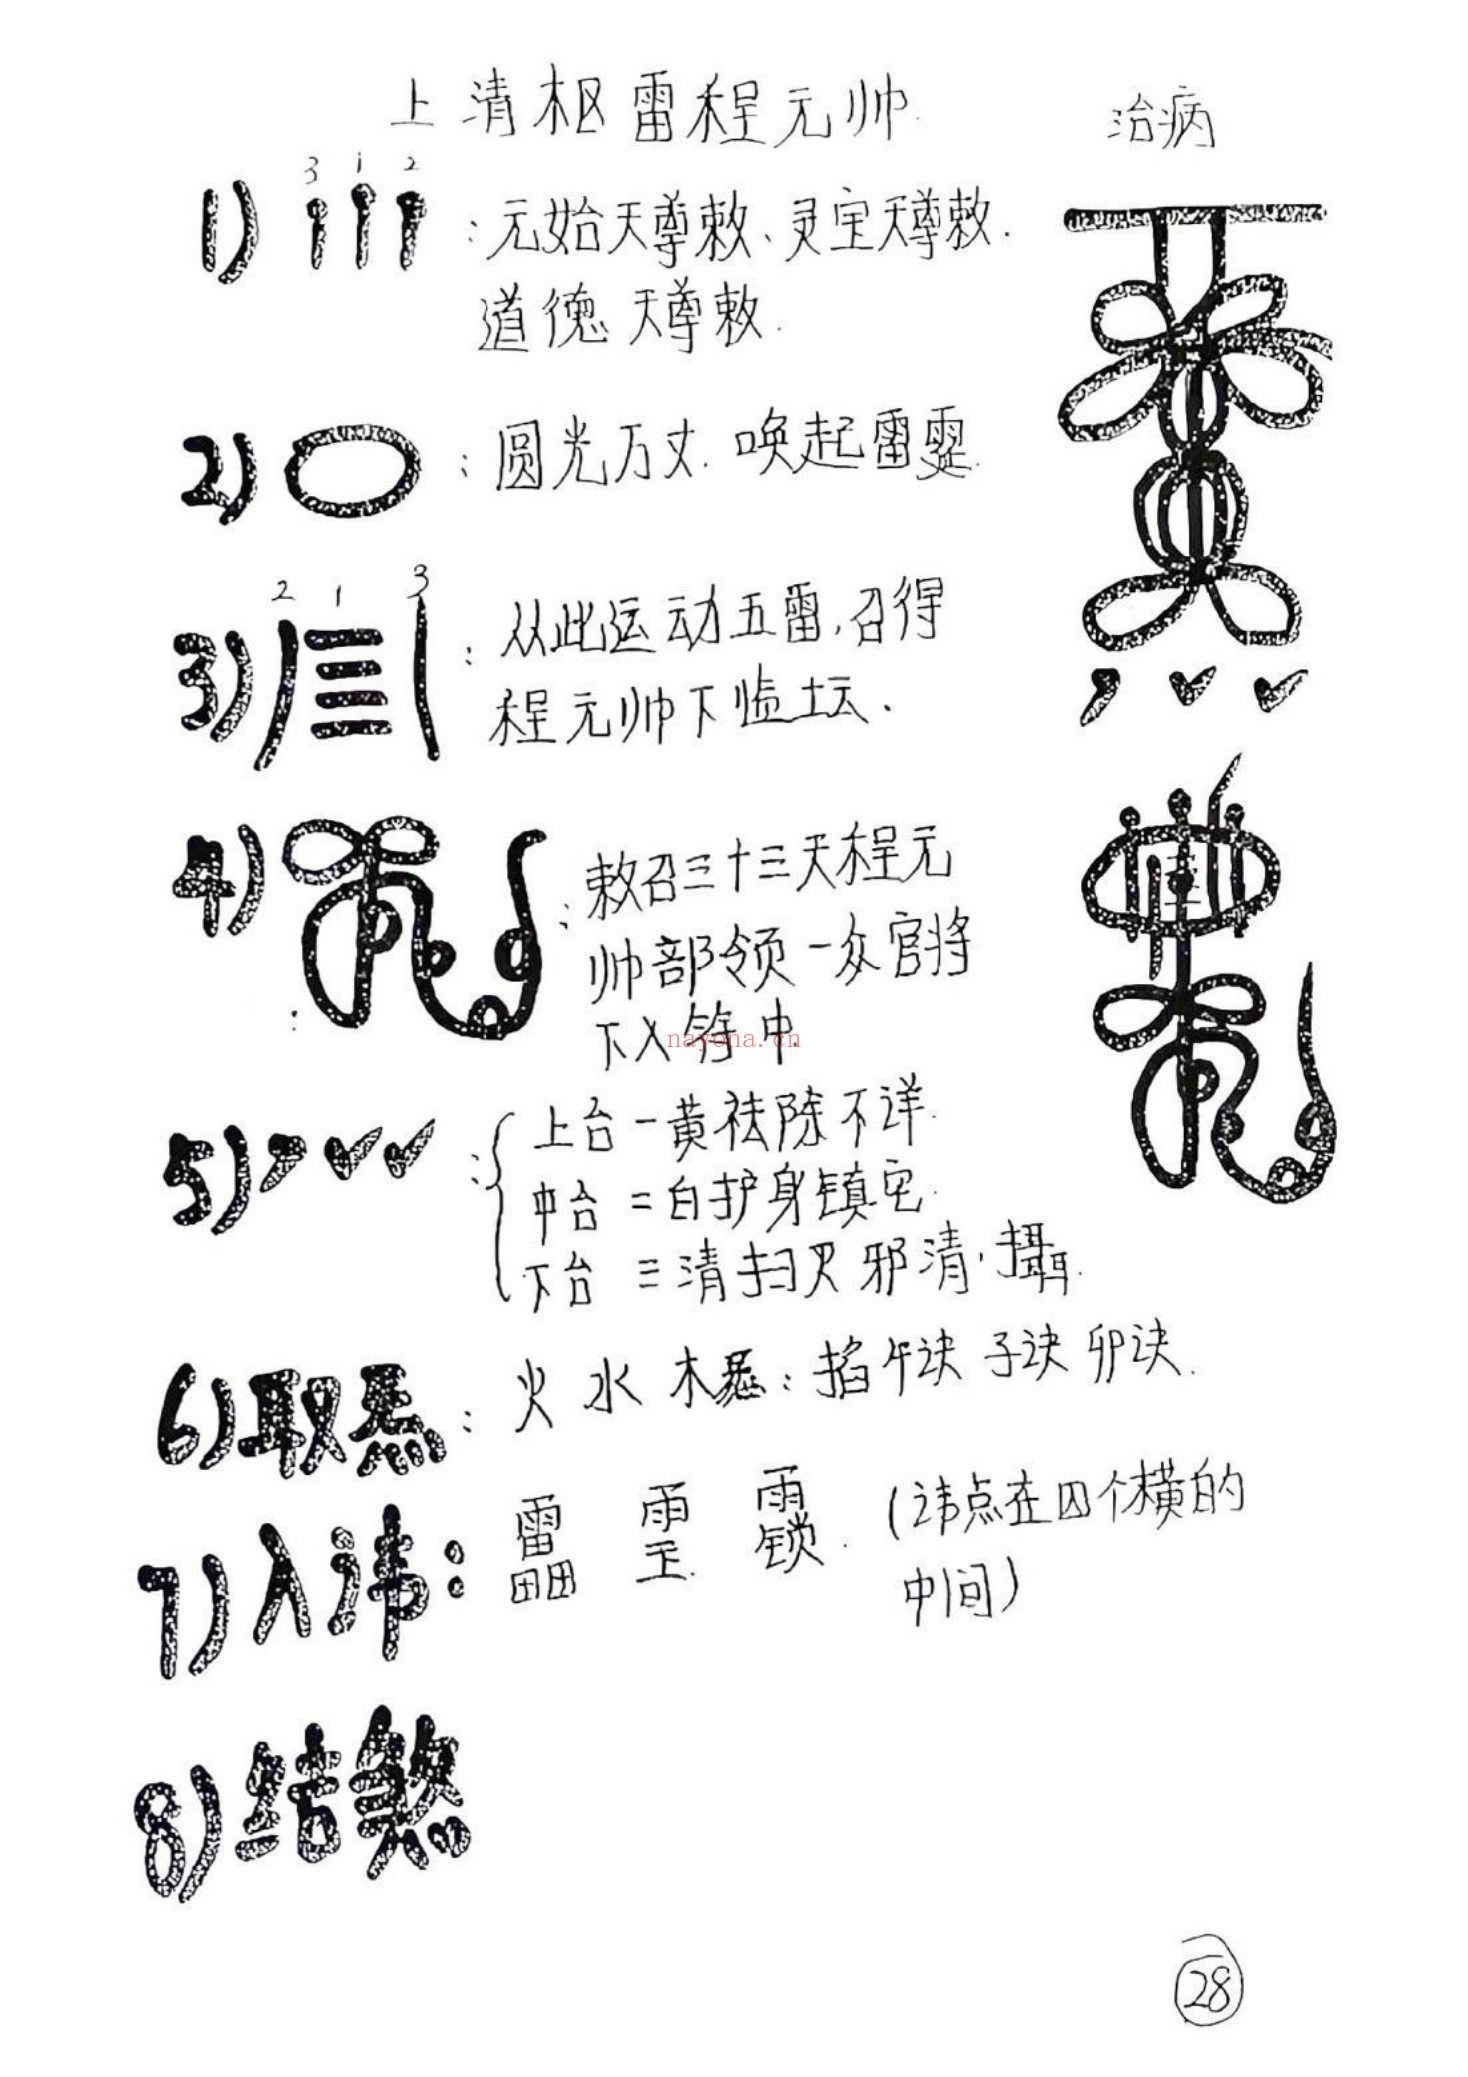 上清枢雷程元帅 治病
3 1 2
1) :元始天尊敕、灵宝天尊敕.
道德天尊敕.
2) :圆光万丈.唤起雷霆.
2 1 3
3) :从此运动五雷,召得
程元帅下临坛.
4) :敕召三十三天程元
帅部领一众官将
下入符中
nayona.cn
5) :上台一黄祛除不详.
中台二白护身镇宅.
下台三清扫灭邪清·摄.
6)取炁:火 水 木炁:掐午诀 子诀 卯诀.
7)入讳: (讳点在四个横的
中间)
8)结煞
28